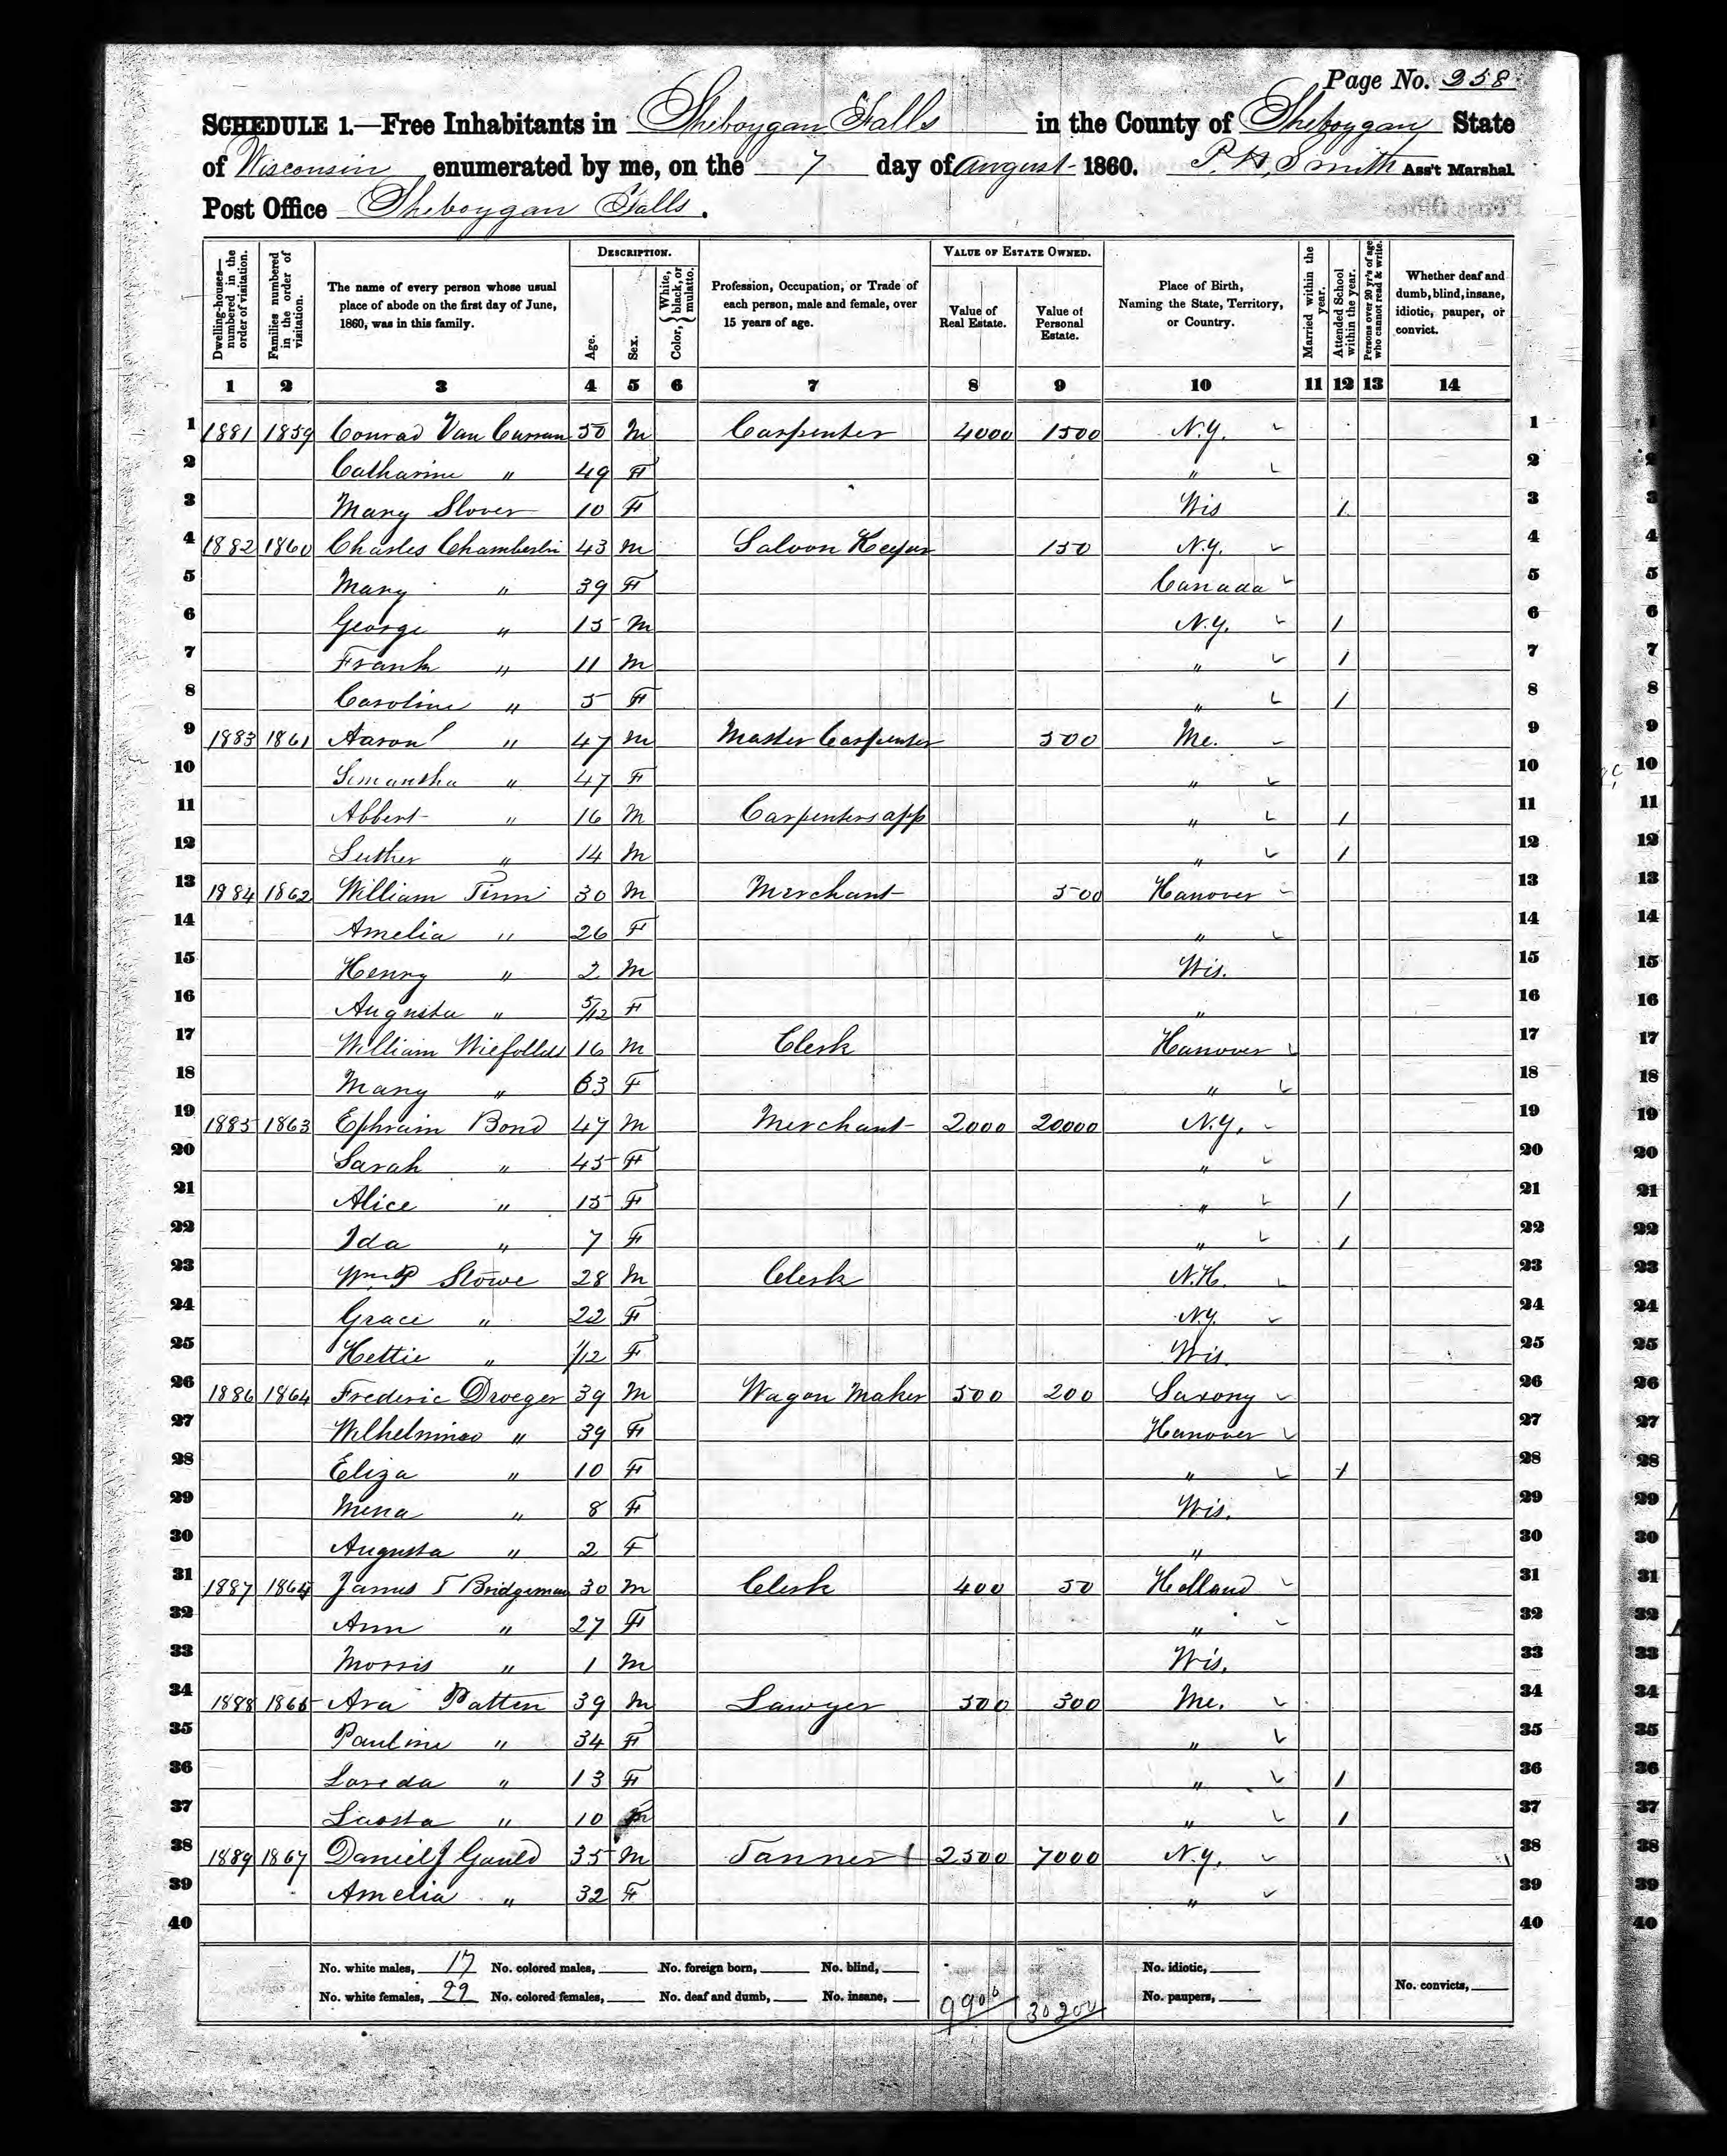 Page No. 358
SCHEDULE 1.—Free Inhabitants in Sheboygan Falls in the County of Sheboygan State
of Wisconsin enumerated by me, on the 7 day of august 1860. P. H. Smith Ass't Marshal
Post Office Sheboygan Falls.
Dwelling-houses—numbered in the order of visitation.
Families numbered in the order of visitation.
The name of every person whose usual place of abode on the first day of June, 1860, was in this family.
DESCRIPTION.
Age.
Sex.
Color, { White, black, or mulatto.
Profession, Occupation, or Trade of each person, male and female, over 15 years of age.
VALUE OF ESTATE OWNED.
Value of Real Estate.
Value of Personal Estate.
Place of Birth, Naming the State, Territory, or Country.
Married within the year.
Attended School within the year.
Persons over 20 yr's of age who cannot read & write.
Whether deaf and dumb, blind, insane, idiotic, pauper, or convict.
1 2 3 4 5 6 7 8 9 10 11 12 13 14
1 1881 1859 Conrad Van Curran 50 M Carpenter 4000 1500 N.Y. 1
2 Catharine " 49 F " 2
3 Mary Slover 10 F Wis / 3
4 1882 1860 Charles Chamberlin 43 M Saloon Keeper 150 N.Y. 4
5 Mary " 39 F Canada 5
6 George " 15 M N.Y. / 6
7 Frank " 11 M " / 7
8 Caroline " 5 F " / 8
9 1883 1861 Aaron " 47 M Master Carpenter 500 Me. 9
10 Simantha " 47 F " 10
11 Abbert " 16 M Carpenters app " / 11
12 Luther " 14 M " / 12
13 1884 1862 William Timm 30 M Merchant 500 Hanover 13
14 Amelia " 26 F " 14
15 Henry " 2 M Wis. 15
16 Augusta " 5/12 F " 16
17 William 16 M Clerk Hanover 17
18 Mary " 63 F " 18
19 1885 1863 Ephraim Bond 47 M Merchant 2000 20000 N.Y. 19
20 Sarah " 45 F " 20
21 Alice " 15 F " / 21
22 Ida " 7 F " / 22
23 Wm P Stowe 28 M Clerk N.H. 23
24 Grace " 22 F N.Y. 24
25 Hettie " 1/12 F Wis. 25
26 1886 1864 Frederic Droeger 39 M Wagon Maker 500 200 Saxony 26
27 Wilhelmina " 39 F Hanover 27
28 Eliza " 10 F " / 28
29 Mena " 8 F Wis. 29
30 Augusta " 2 F " 30
31 1887 James T Bridgeman 30 M Clerk 400 50 Holland 31
32 Ann " 27 F " 32
33 Morris " 1 M Wis. 33
34 1888 Ara Patten 39 M Lawyer 500 300 Me. 34
35 Pauline " 34 F " 35
36 Loreda " 13 F " / 36
37 Laosta " 10 " / 37
38 1889 1867 Daniel J Gould 35 M Tanner 2500 7000 N.Y. 38
39 Amelia " 32 F " 39
40 40
No. white males, 17 No. colored males, No. foreign born, No. blind, No. idiotic,
No. white females, 22 No. colored females, No. deaf and dumb, No. insane, 9900 30200 No. paupers, No. convicts,